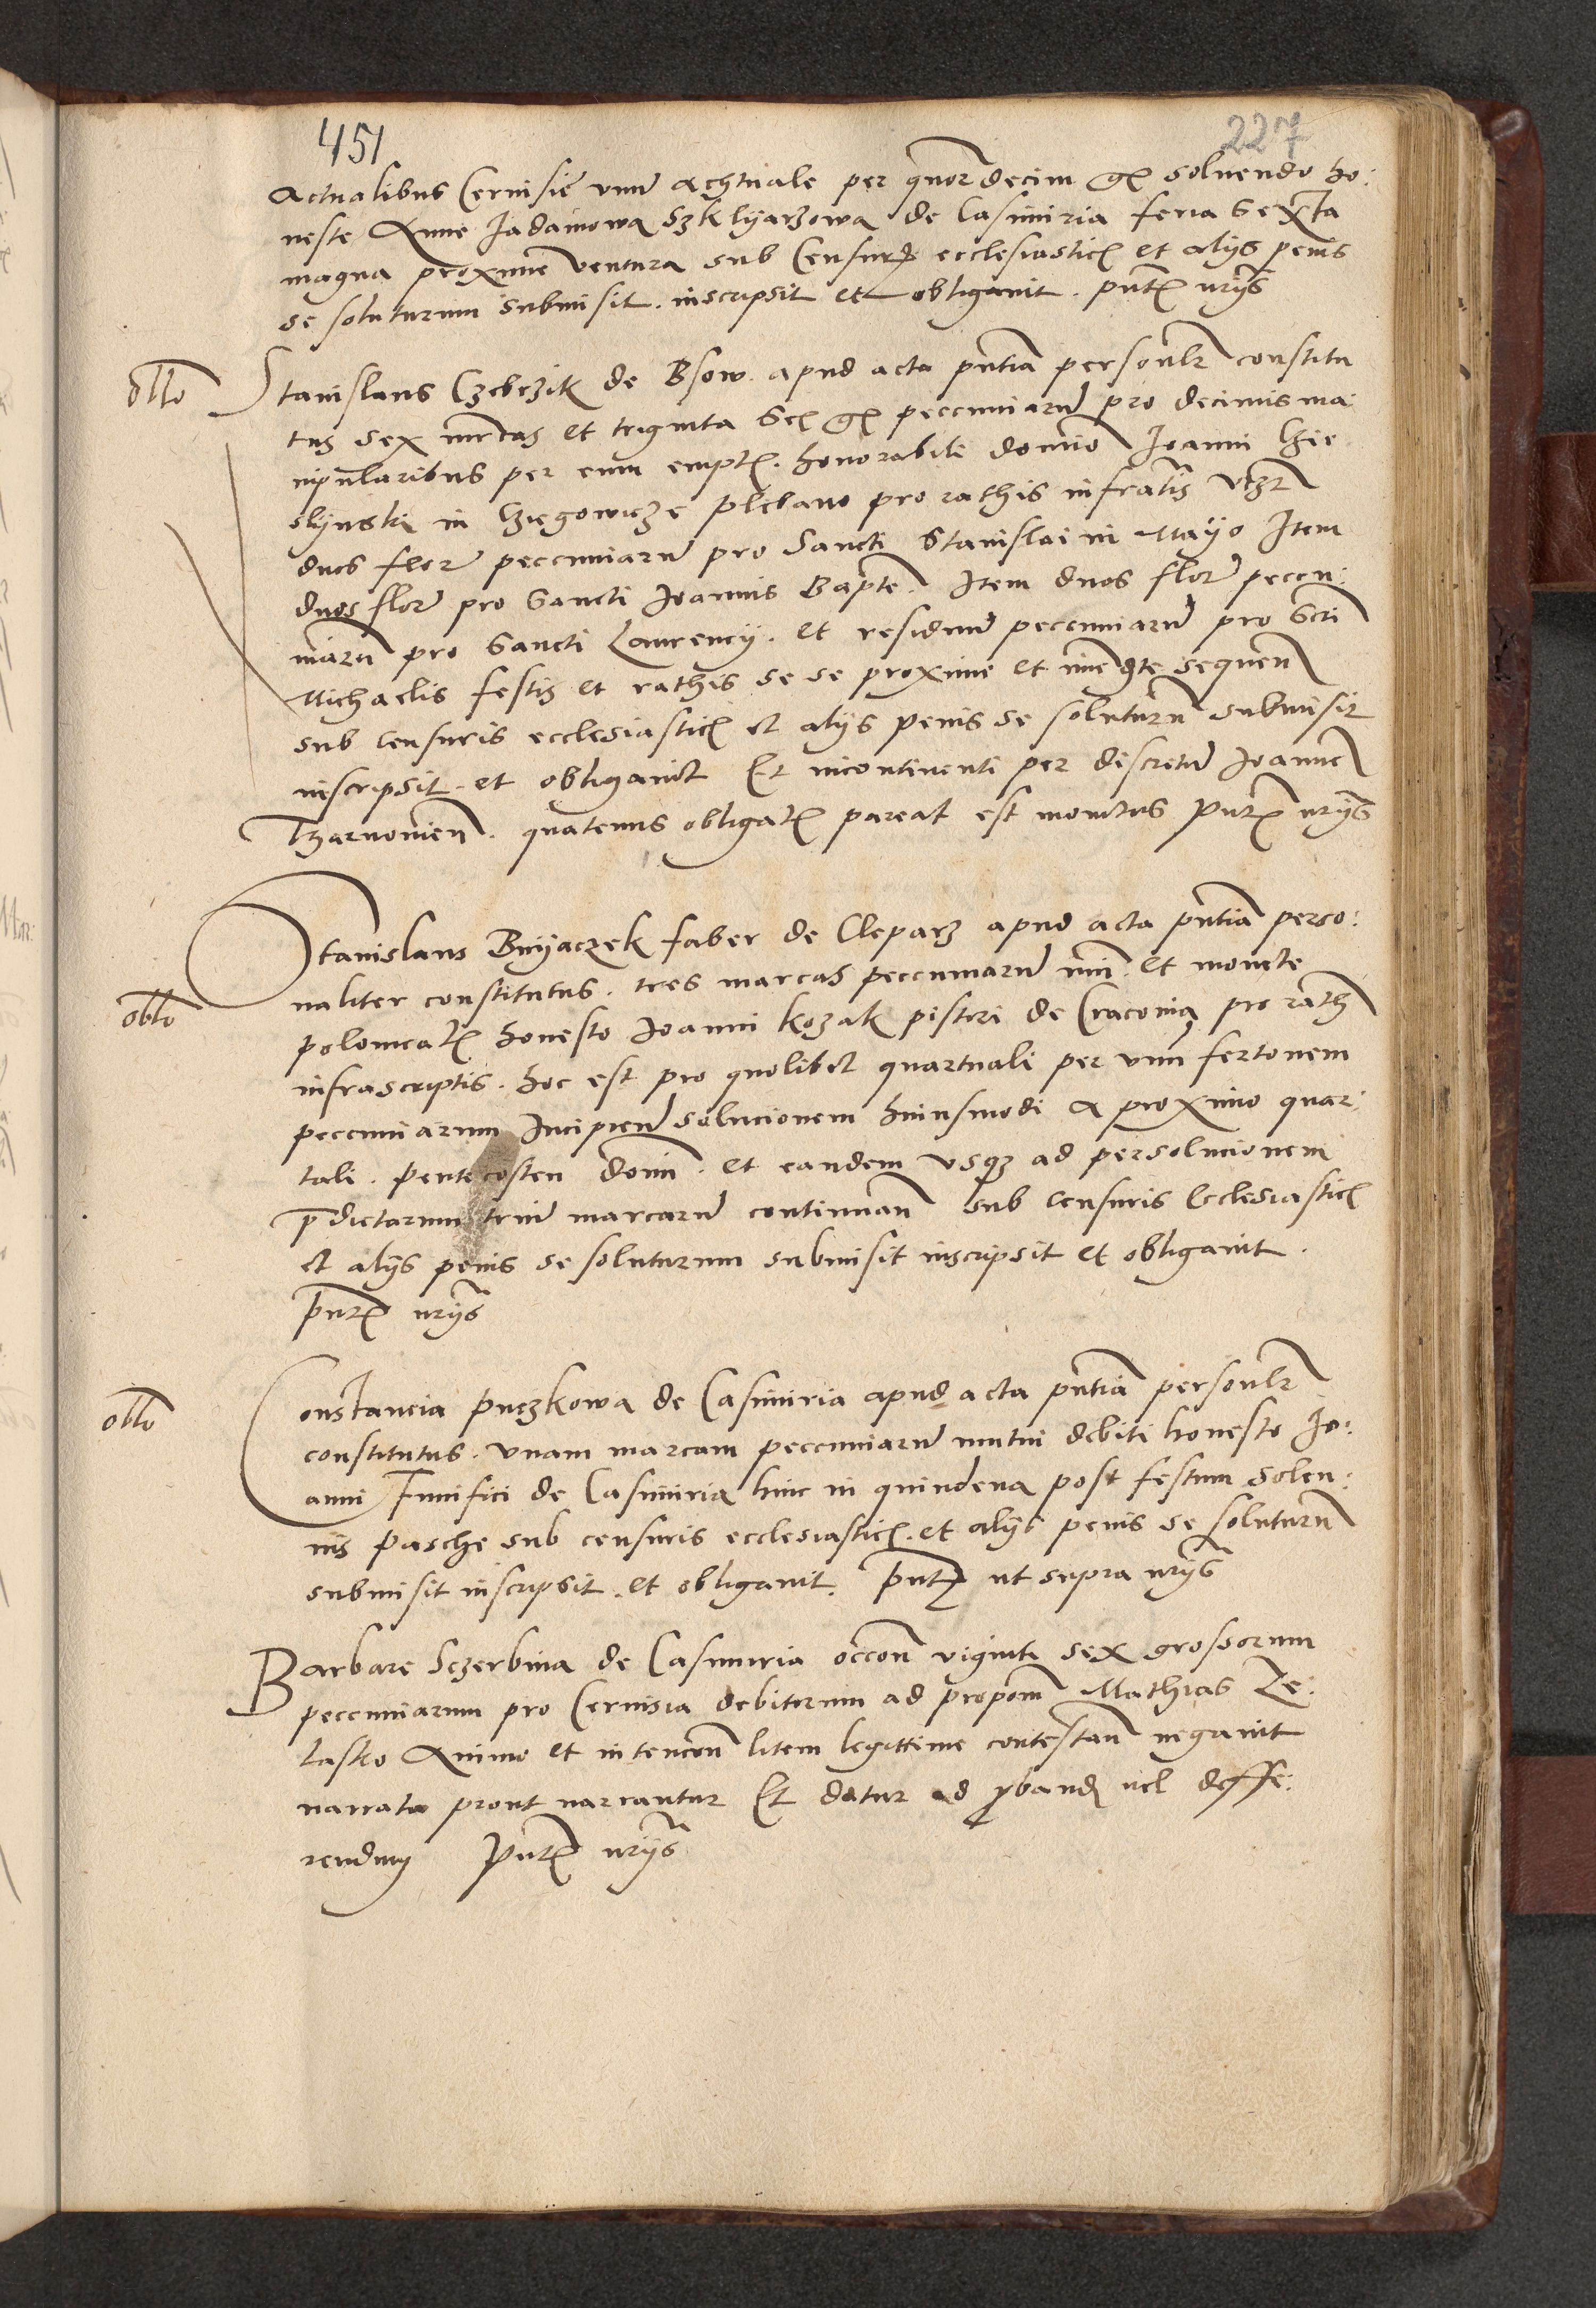 451
227
Actualibus Cervisie unu(m) achtuale per quor decim gr solvendo ho:
neste Anne Jadamowa Szklyarzowa de Casimiria feria sexta
magna proxime ventura sub Censur ecclesiastic et alijs penis
se soluturum submisit. inscripsit et obligavit. pntt nrijs
obllo
Stanislaus Czebrzik de Bsow apud acta pntia personlr constitu
tus sex mrcas et triginta sex gr peccuniaru pro decimis ma
nipularibus per eum empt. honorabili domino Joanni
slynski in plebano pro rathis infratis vtzt
duos flor peccuniaru pro Sancti Stanislai in Mayo Item
duos flor pro Sancti Joannis Bapte. Item duos flor peccu:
niaru pro Sancti Laurencij. et residuu peccuniaru pro Scti
Michaelis festis et rathis se se proxime et imediate sequen
sub censuris ecclesiastic et alijs penis se soluturu submisit
inscripsit. et obligavit Et incontinenti per discretu Joanne
Tzarnovien. quatenus obligat pareat est monitus Pntt nrijs
obllo
Stanislaus Buyaczek faber de Cleparz apud acta pntia perso:
naliter constitutus. tres marcas peccuniaru nui. et monete
polonicat honesto Joanni Kozak pistori de Cracovia pro rath
infrascriptis. hoc est pro quolibet quartuali per unu fertonem
peccuniarum Incipien solucionem huiusmodi a proximo quar:
tali. pentecosten domi. et eandem usqz ad persolucionem
pdictarum triu marcaru continuan sub censuris Ecclesiastic
et alijs penis se soluturum submisit inscripsit et obligavit.
pntt nrijs
obllo
Constancia Puczkowa de Casimiria apud acta pntia personlr
constitutus. unam marcam peccuniaru mutui debiti honesto Jo:
anni Funifici de Casimiria hinc in quindena post festum solen:
nis Pasche sub censuris ecclesiastic. et alijs penis se soluturu
submisit inscripsit. et obligavit. pntt ut supra nrijs
Barbare Sczerbina de Casimiria occon viginti sex grossorum
peccuniarum pro Cervisia debitorum ad propom Mathias Ze:
lasko Animo et intencon litem legittime contestan negavit
narrata prout narrantur Et datur ad pband vel deffe:
rendum Pntt nrijs